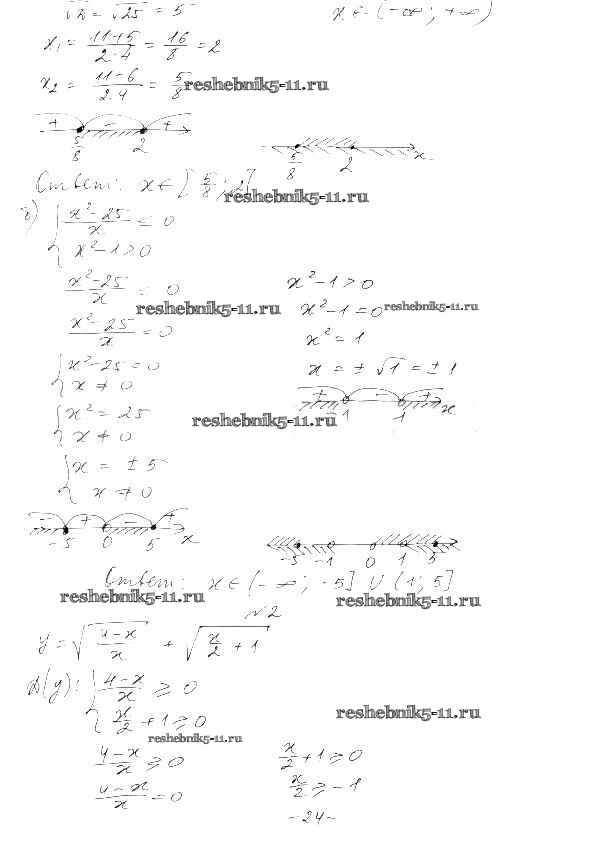 √D = √25 = 5
x ∈ (-∞; +∞)
x₁ = (11+5)/(2·4) = 16/8 = 2
x₂ = (11-6)/(2·4) = 5/8
reshebnik5-11.ru
+ - +
5/8 2
5/8 2 x
Ответ: x ∈ [5/8; 2]
reshebnik5-11.ru
{ (x²-25)/x ≤ 0
x²-1 > 0
(x²-25)/x ≤ 0
x²-1 > 0
reshebnik5-11.ru
x²-1 = 0
reshebnik5-11.ru
(x²-25)/x = 0
x² = 1
{ x²-25 = 0
x ≠ 0
x = ± √1 = ± 1
+ - +
-1 1 x
{ x² = 25
x ≠ 0
reshebnik5-11.ru
{ x = ± 5
x ≠ 0
- + - +
-5 0 5 x
-5 -1 0 1 5
Ответ: x ∈ (-∞; -5] ∪ (1; 5]
reshebnik5-11.ru
reshebnik5-11.ru
№2
y = √((4-x)/x) + √(x/2 + 1)
D(y): { (4-x)/x ≥ 0
x/2 + 1 ≥ 0
reshebnik5-11.ru
reshebnik5-11.ru
(4-x)/x ≥ 0
x/2 + 1 ≥ 0
(4-x)/x = 0
x/2 ≥ -1
-24-